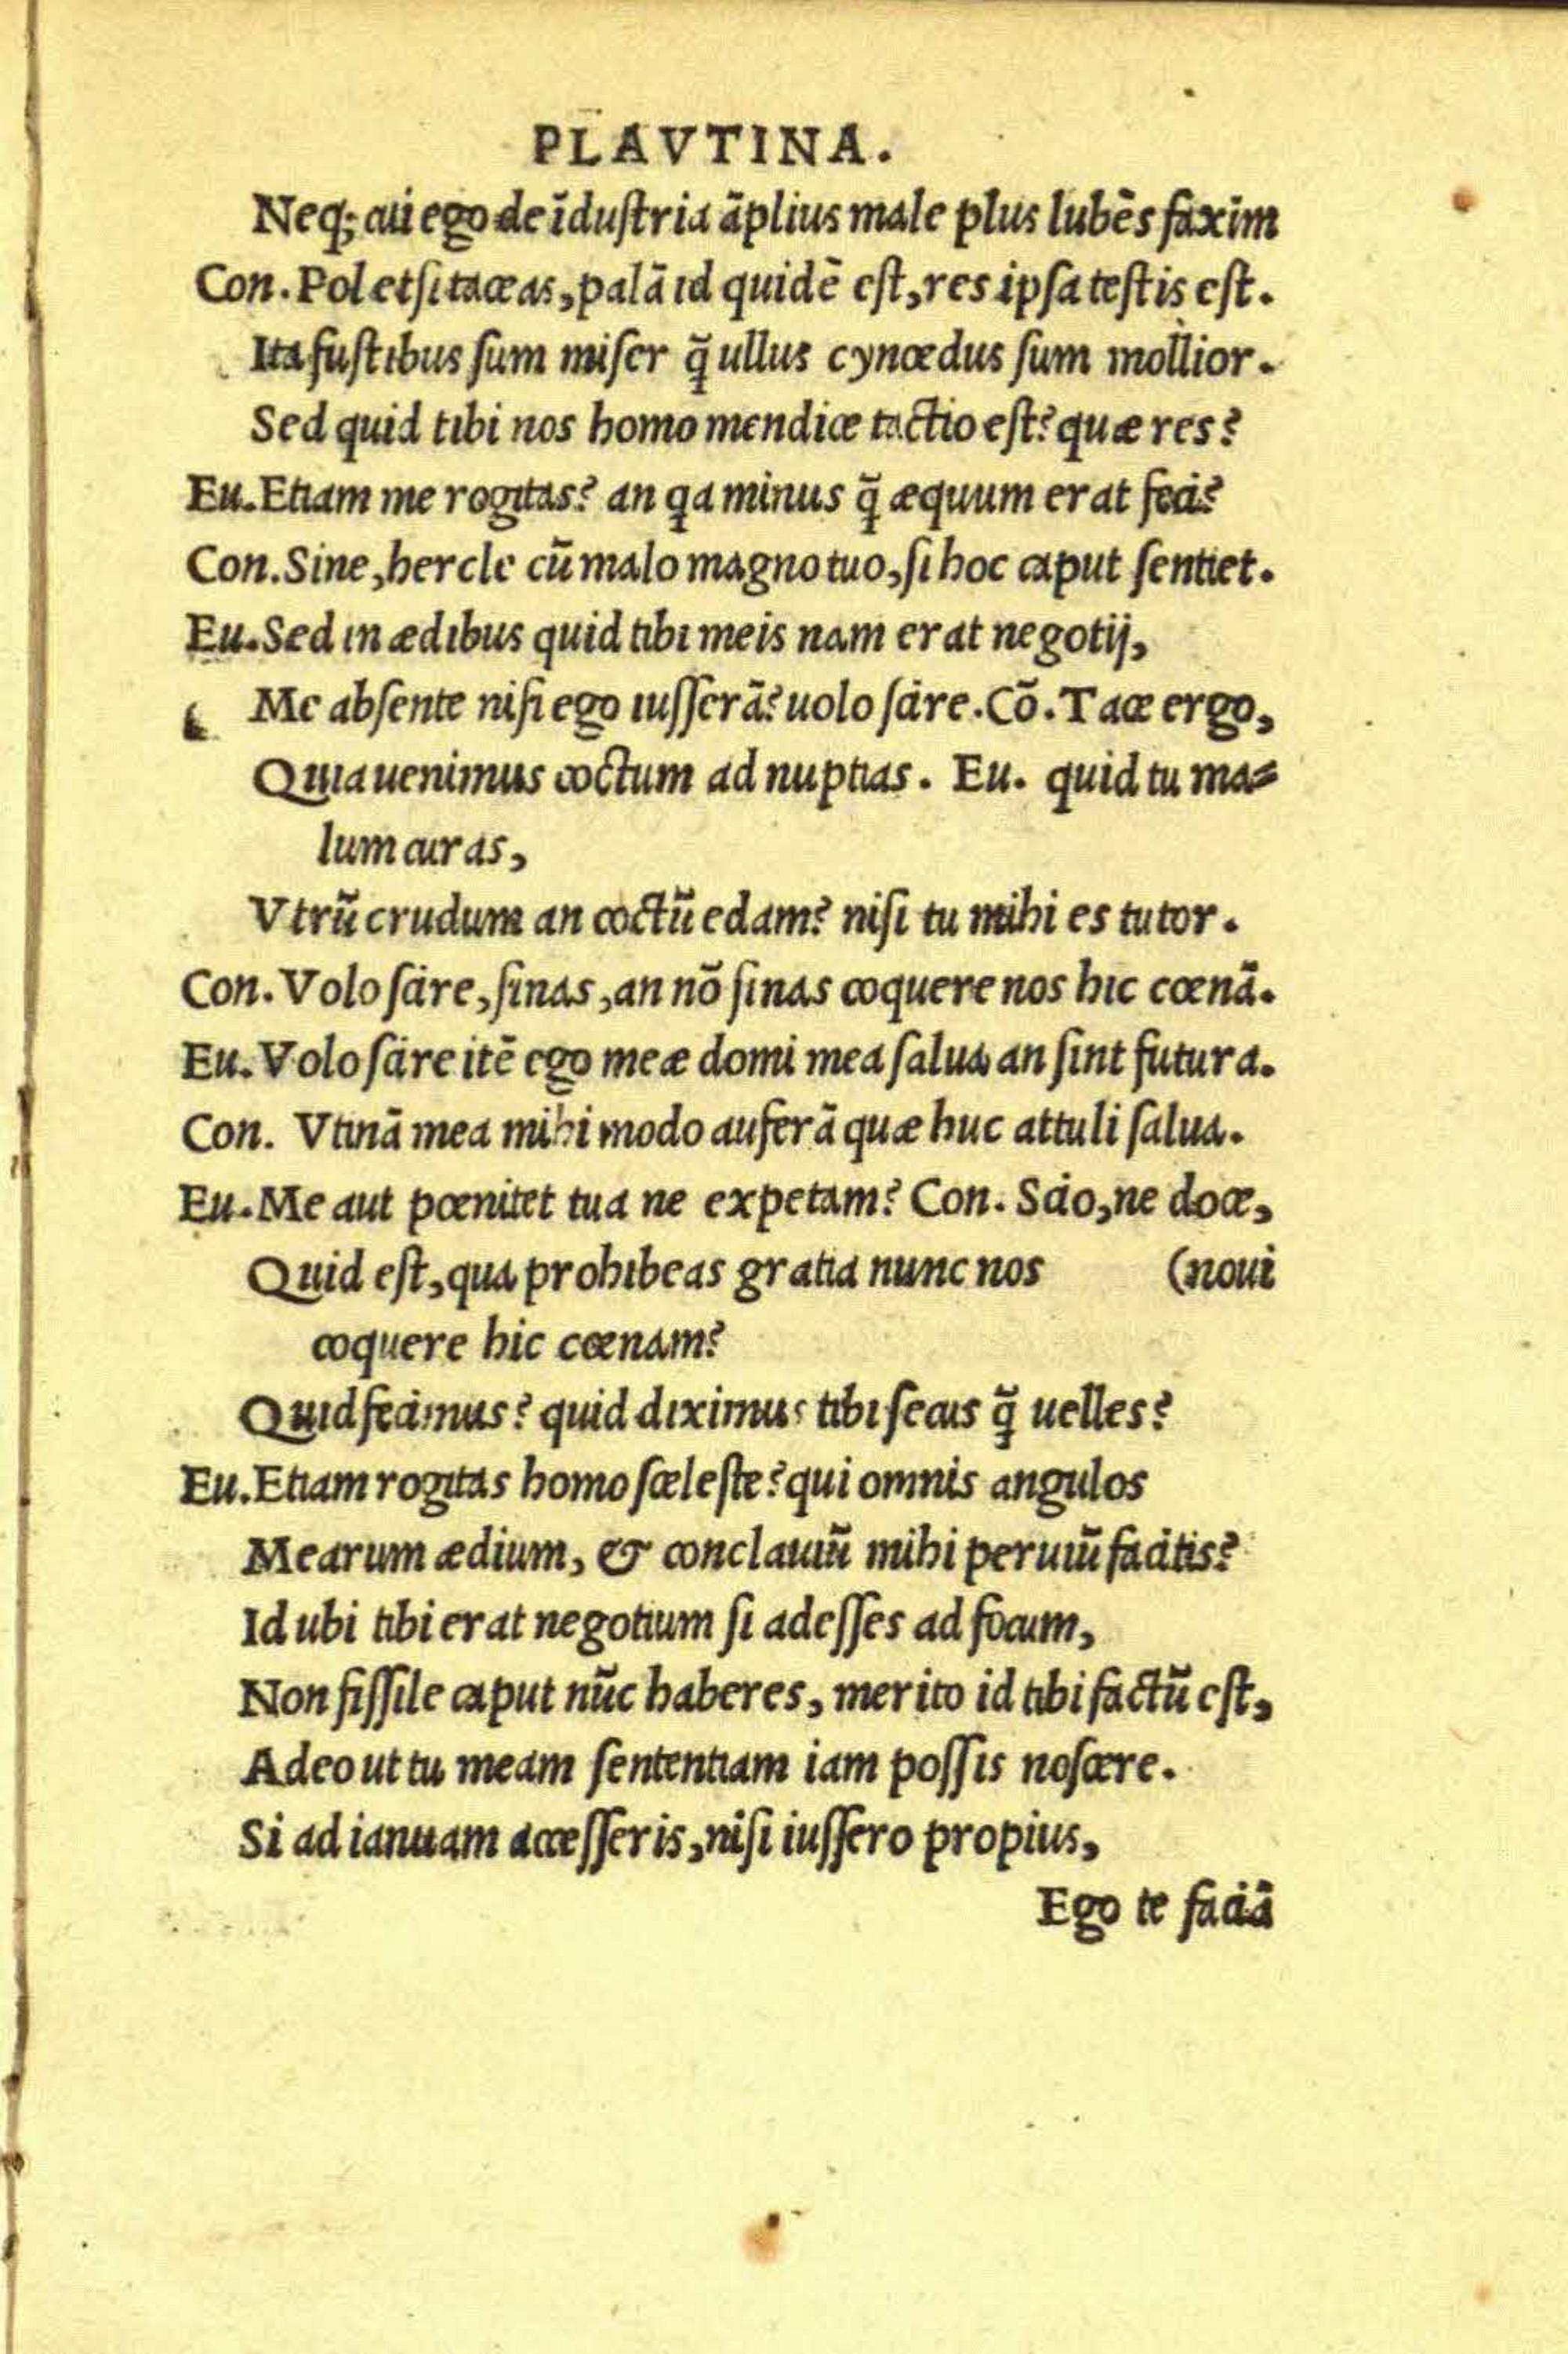 PLAVTINA.
Neq; cui ego de ĩdustria ãplius male plus lubẽs faxim
Con. Pol etsi taceas, palã id quidẽ est, res ipsa testis est.
Ita fustibus sum miser q̃ ullus cynœdus sum mollior.
Sed quid tibi nos homo mendice tactio est? quæ res?
Eu. Etiam me rogitas? an qa minus q̃ æquum erat feci?
Con. Sine, hercle cũ malo magno tuo, si hoc caput sentiet.
Eu. Sed in ædibus quid tibi meis nam erat negotij,
Me absente nisi ego iusserã? uolo scire. Cõ. Tace ergo,
Quia uenimus coctum ad nuptias. Eu. quid tu ma=
lum curas,
Vtrũ crudum an coctũ edam? nisi tu mihi es tutor.
Con. Volo scire, sinas, an nõ sinas coquere nos hic cœnã.
Eu. Volo scire itẽ ego meæ domi mea salua an sint futura.
Con. Vtinã mea mihi modo auferã quæ huc attuli salua.
Eu. Me aut pœnitet tua ne expetam? Con. Scio, ne doce,
Quid est, qua prohibeas gratia nunc nos (noui
coquere hic cœnam?
Quid fecimus? quid diximus tibi secus q̃ uelles?
Eu. Etiam rogitas homo sceleste? qui omnis angulos
Mearum ædium, & conclauiũ mihi peruiũ facitis?
Id ubi tibi erat negotium si adesses ad focum,
Non fissile caput nũc haberes, merito id tibi factũ est,
Adeo ut tu meam sententiam iam possis noscere.
Si ad ianuam accesseris, nisi iussero propius,
Ego te faciã